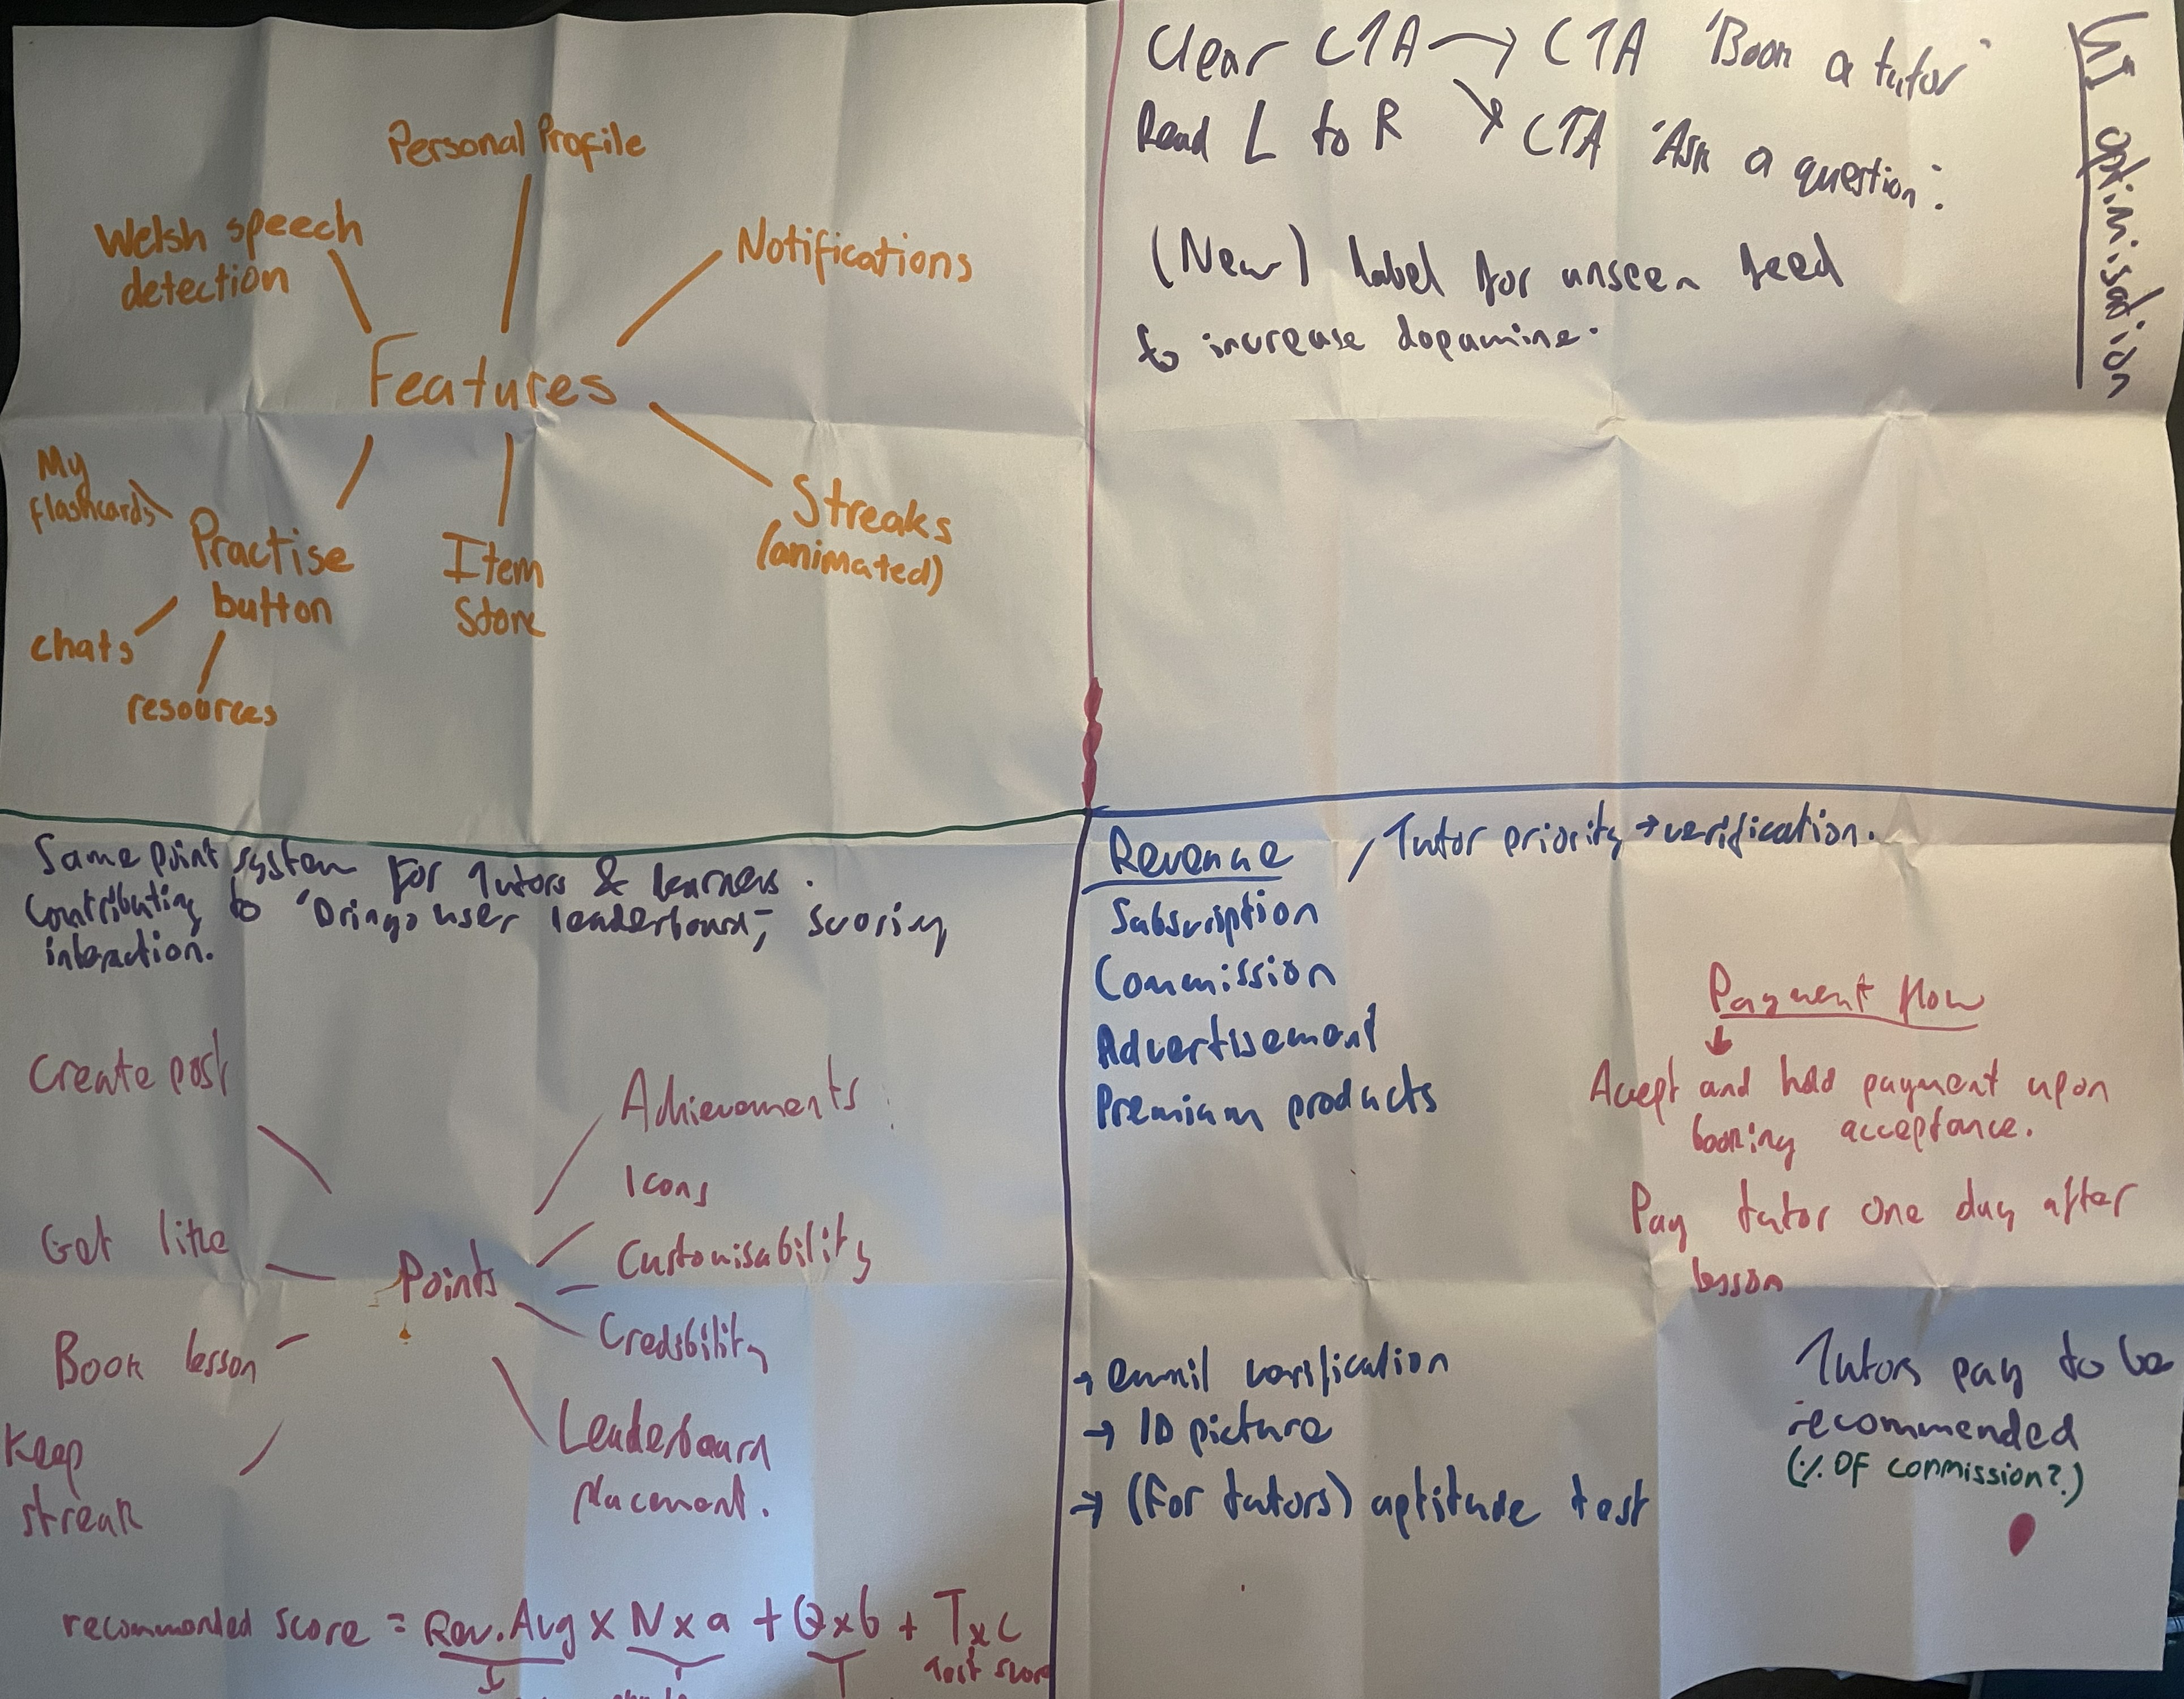 Personal Profile
Welsh speech
detection
Notifications
Features
My
flashcards
Practise
button
Item
Store
Streaks
(animated)
chats
resources
UI optimisation
Clear CTA → CTA 'Book a tutor'
Read L to R ↘ CTA 'Ask a question'.
(New) label for unseen feed
to increase dopamine.
Same point system for tutors & learners.
Contributing to 'Dringo user leaderboard', scoring
interaction.
Create post
Get like
Book lesson
Keep
streak
Points
Achievements
Icons
Customisability
Credibility
Leaderboard
placement.
recommended score = Rev. Avg x N x a + Q x b + T x c
Test score
Revenue
Tutor priority → verification.
Subscription
Commission
Advertisement
Premium products
Payment flow
↓
Accept and hold payment upon
booking acceptance.
Pay tutor one day after
lesson
→ email verification
→ ID picture
→ (For tutors) aptitude test
Tutors pay to be
recommended
(% OF commission?)